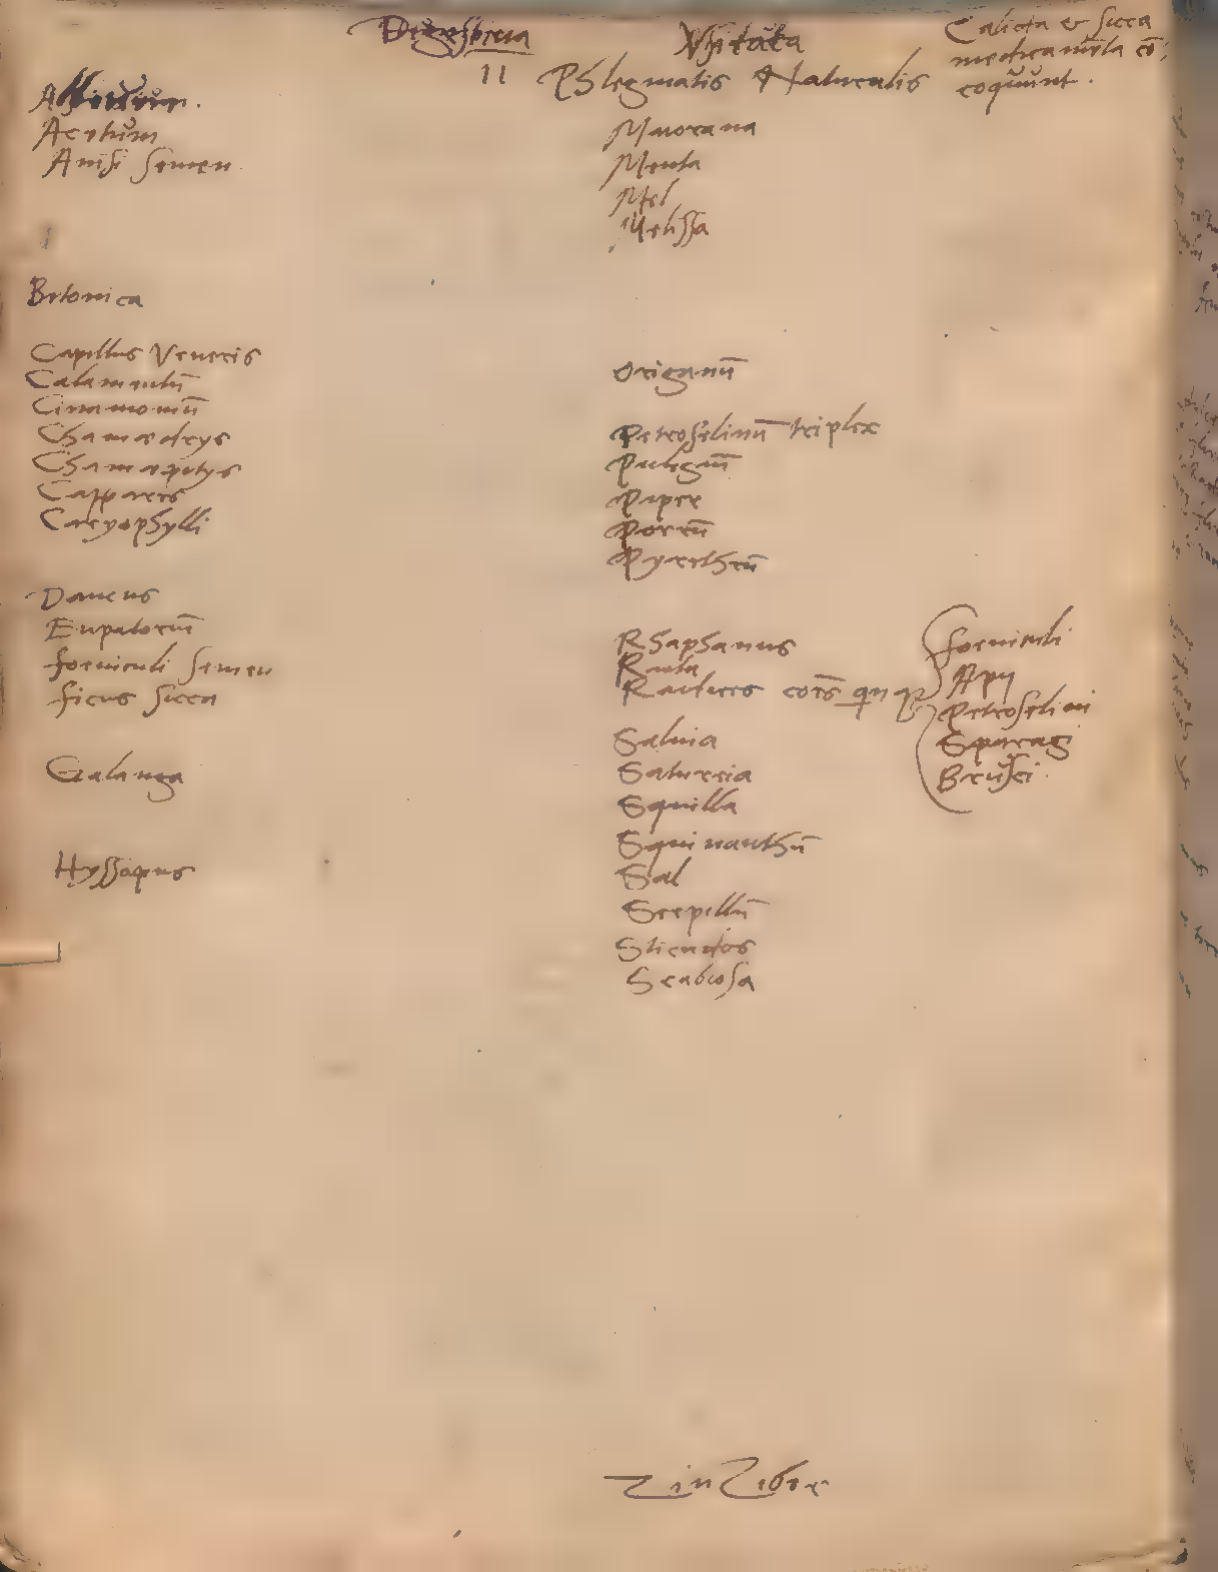 Digestiva Vsitata
11 Phlegmatis Naturalis
Calida & sicca
medicamēta cō,
coquunt.
Absinthium.
Acetum
Anisi semen
Betonica
Capillus Veneris
Calamentū
Cinamomū
Chamædrys
Chamæpitys
Capparis
Caryophylli
Daucus
Eupatoriū
foeniculi semen
ficus sicca
Galanga
Hyssopus
Maiorana
Menta
Mel
Melissa
Origanū
Petroselinū triplex
Pulegiū
Piper
Porrū
Pyrethrū
Rhaphanus
Ruta
Radices coīes qnq
foeniculi
Apij
Petroselini
Sparagi
Brusci.
Saluia
Satureia
Squilla
Squinanthū
Sal
Serpillū
Sticados
Scabiosa
Zinziber